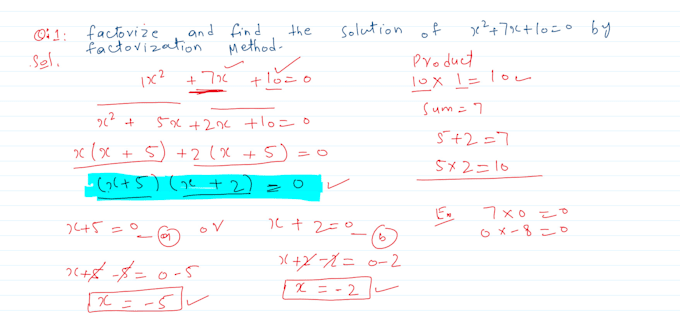 Q:1: factorize and find the solution of x²+7x+10=0 by
factorization Method.
Sol.
1x² + 7x + 10 = 0
x² + 5x + 2x + 10 = 0
x(x + 5) + 2(x + 5) = 0
(x+5) (x + 2) = 0
x+5 = 0 — a or x + 2 = 0 — b
x+5 -5 = 0-5 x+2 -2 = 0-2
x = -5 x = -2
Product
10 x 1 = 10
Sum = 7
5+2 = 7
5x2 = 10
Ex 7x0 = 0
0x-8 = 0